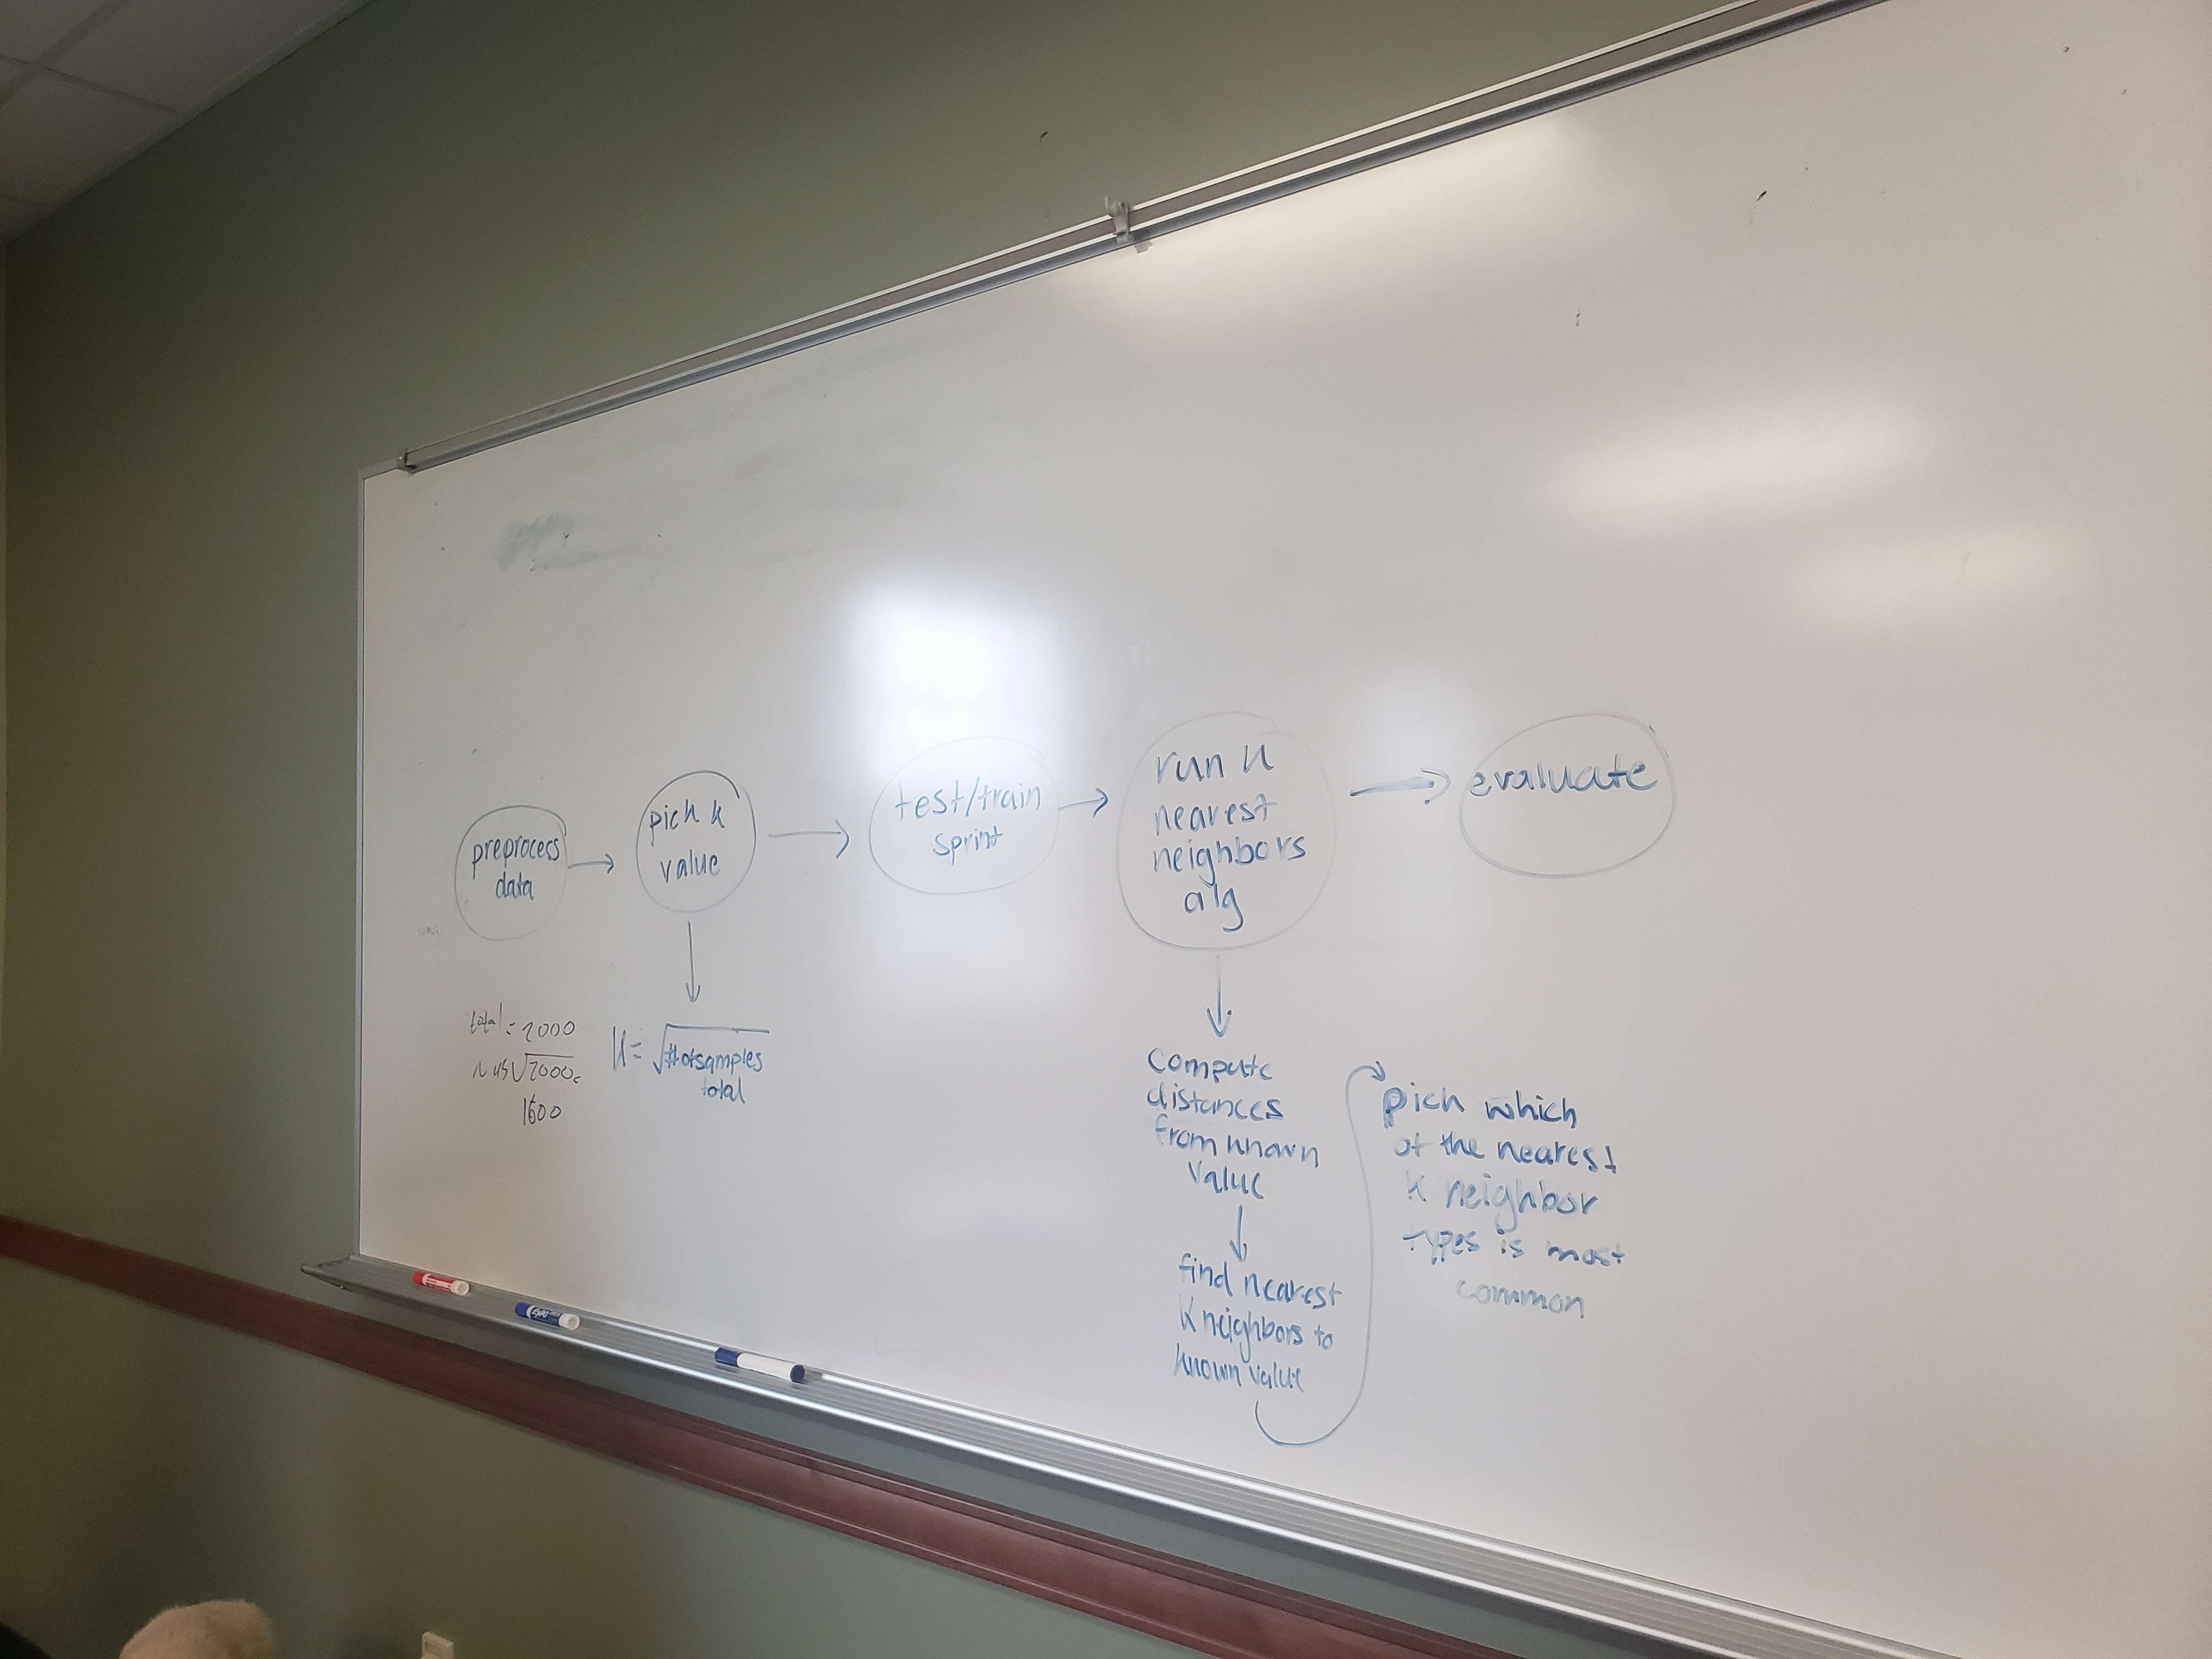 preprocess
data
pick k
value
test/train
sprint
run k
nearest
neighbors
alg
evaluate
total = 2000
√2000
1600
K = √#ofsamples
total
compute
distances
from known
value
find nearest
K neighbors to
known value
pick which
of the nearest
K neighbor
types is most
common
EXPO